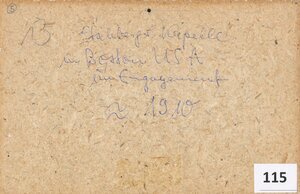 ⑤
15
in Boston USA
im Engagement
≈ 1910
115